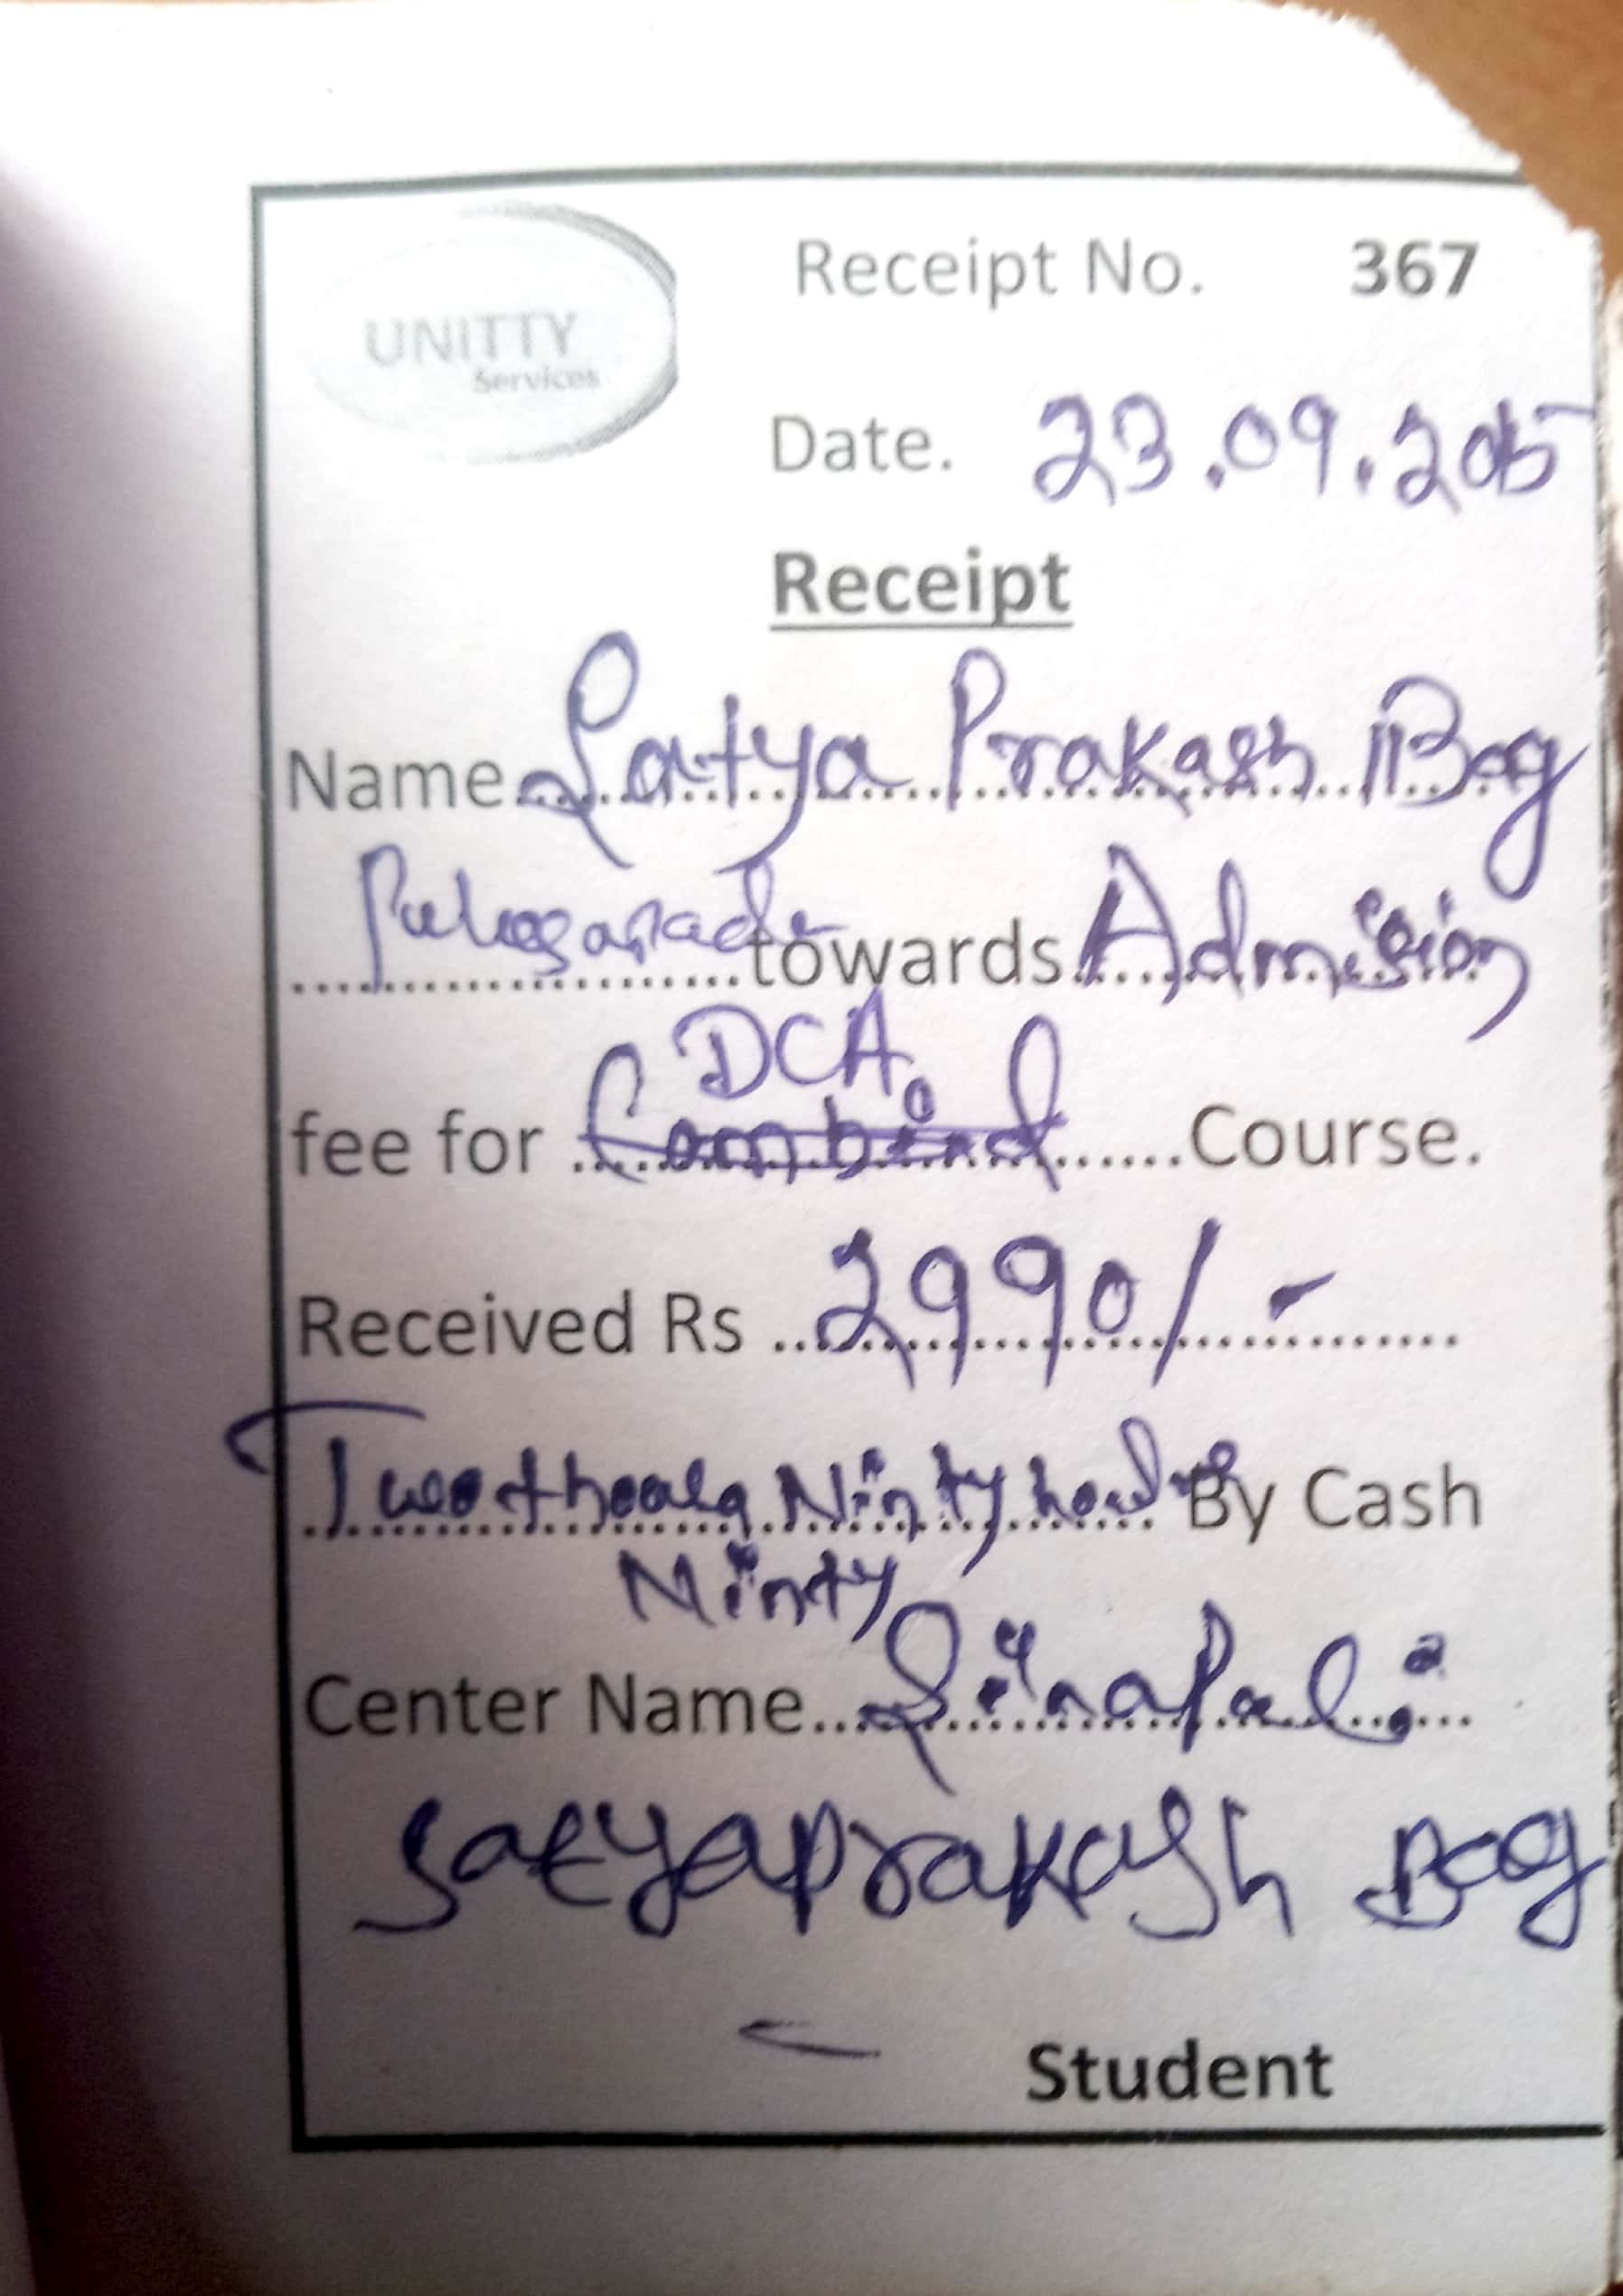 UNITTY
Services
Receipt No. 367
Date. 23.09.2015
Receipt
Name Satya Prakash Bag
towards Admision
DCA
fee for Combind Course.
Received Rs 2990/-
Ninty By Cash
Ninty
Center Name SinaPali
Satyaprakash Bag
Student